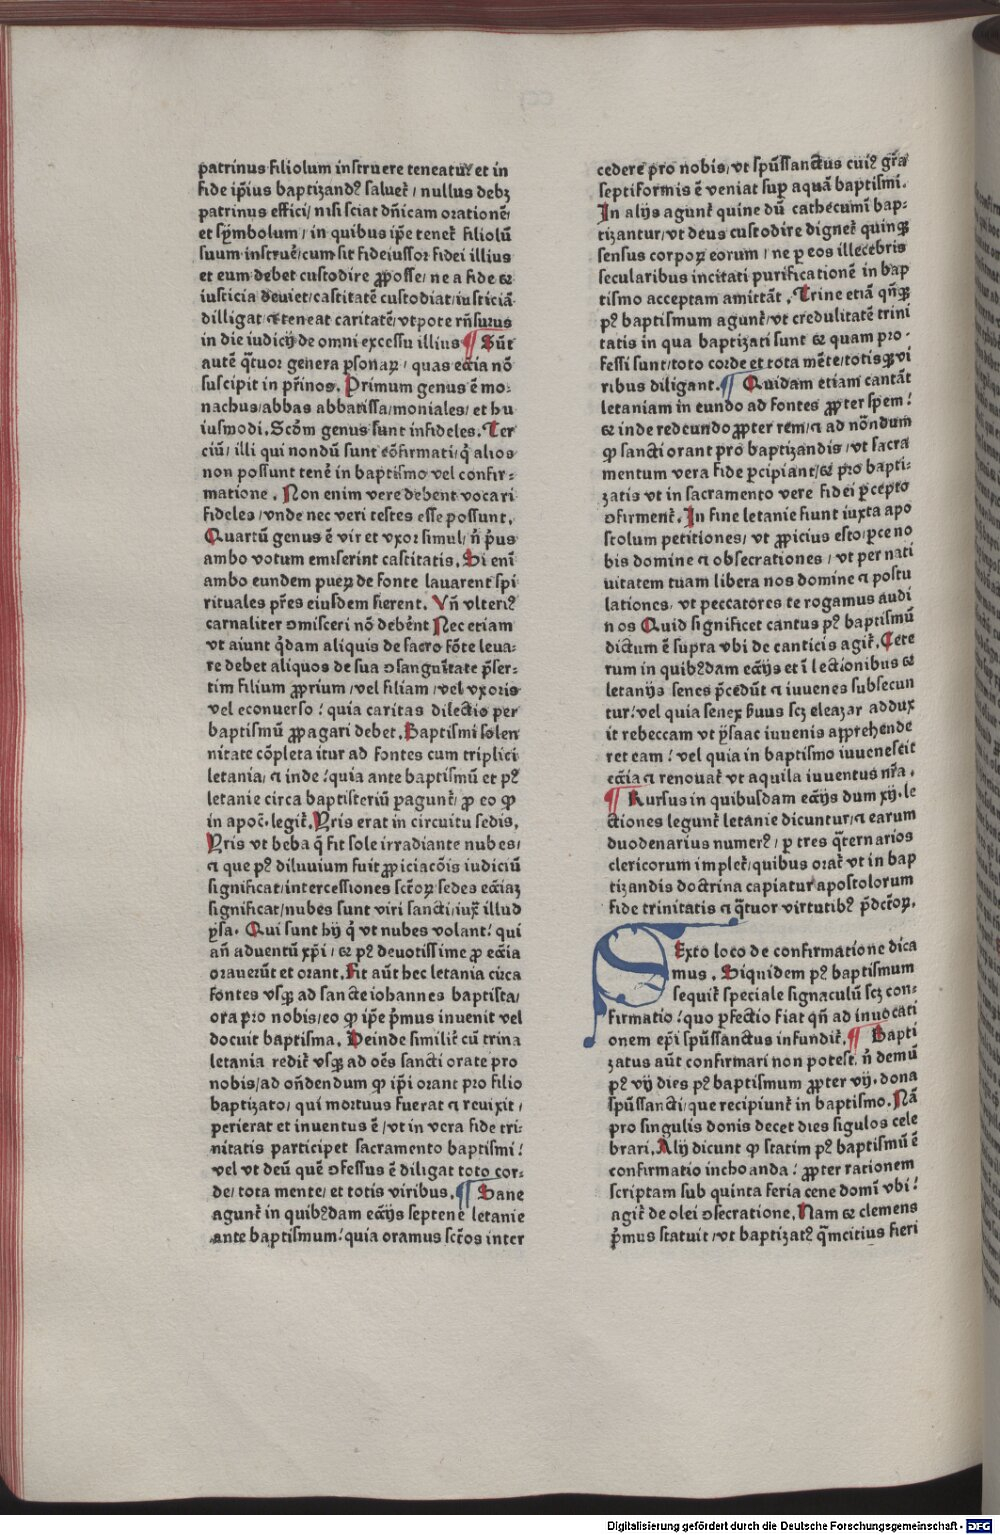 patrinus filiolum instruere teneatur et in
fide ip̄ius baptizandꝰ saluet᷑ / nullus debꝫ
patrinus effici / nisi sciat dn̄icam orationē
et sȳmbolum / in quibus ip̄e tenet᷑ filiolū
suum instrue᷑ / cum sit fideiussor fidei illius
et eum debet custodire ꝓposse / ne a fide ⁊
iusticia deuiet / castitatē custodiat / iusticiā
dilligat ⁊ teneat caritatē / vtpote rn̄surus
in die iudicij de omni excessu illius ¶ Sūt
autē q̄tuor genera ꝑsonaꝝ / quas ecc̄ia nō
suscipit in pr̄inos. Primum genus ē mo⸗
nachus / abbas abbatissa / moniales / et hu
iusmodi. Scd̄m genus sunt infideles. Ter
ciū / illi qui nondū sunt cōfirmati / q̇ alios
non possunt tene᷑ in baptismo vel confir⸗
matione. Non enim vere debent vocari
fideles / vnde nec veri testes esse possunt.
Quartū genus ē vir et vxor simul / n̄ pͥus
ambo votum emiserint castitatis. Si enī
ambo eundem pueꝝ de fonte lauarent spi
rituales pr̄es eiusdem fierent. Vn̄ vlteriꝰ
carnaliter ↄmisceri nō debēnt Nec etiam
vt aiunt q̇dam aliquis de sacro fōte leua⸗
re debet aliquos de sua ↄsanguītate p̄ser⸗
tim filium ꝓprium / vel filiam / vel vxoris
vel econuerso ⁝ quia caritas dilectio per
baptismū ꝓpagari debet. Baptismi solen
nitate cōpleta itur ad fontes cum triplici
letania / ⁊ inde ⁝ quia ante baptismū et pꝰ
letanie circa baptisteriū ꝑagunt᷑ / ꝓ eo ꝙ
in apoc̄. legit᷑. Yris erat in circuitu sedis.
Yris vt beba q̄ fit sole irradiante nubes /
⁊ que pꝰ diluuium fuit ꝓpiciac̄ōis iudiciū
significat / intercessiones sct̄oꝝ sedes ecc̄iaꝫ
significat / nubes sunt viri sancti / iux᷑ illud
ysa. Qui sunt hij q̇ vt nubes volant ⁝ qui
an̄ aduentū xp̄i / ⁊ pꝰ deuotissime ꝓ ecc̄ia
orauerūt et orant. Fit aūt hec letania circa
fontes vsqꝫ ad sancte iohannes baptista /
ora pro nobis / eo ꝙ ip̄e pͥmus inuenit vel
docuit baptisma. Deinde similit᷑ cū trina
letania redit᷑ vsqꝫ ad oēs sancti orate pro
nobis / ad on̄dendum ꝙ ip̄i orant pro filio
baptizato / qui mortuus fuerat ⁊ reuixit /
perierat et inuentus ē / vt in vera fide tri⸗
nitatis participet sacramento baptismi ⁝
vel vt deū quē ↄfessus ē diligat toto cor⸗
de / tota mente / et totis viribus. ¶ Sane
agunt᷑ in quibꝰdam ecc̄ijs septene letanie
ante baptismum ⁝ quia oramus sct̄os inter
cedere pro nobis / vt spūssanctus cuiꝰ gr̄a
septiformis ē veniat suꝑ aquā baptismi.
In alijs agunt᷑ quine dū cathecumī bap⸗
tizantur / vt deus custodire dignet᷑ quinqꝫ
sensus corpoꝝ eorum / ne ꝑ eos illecebris
secularibus incitati purificationē in bap
tismo acceptam amittāt. Trine etiā qn̄qꝫ
pꝰ baptismum agunt᷑ / vt credulitatē trini
tatis in qua baptizati sunt ⁊ quam pro⸗
fessi sunt / toto corde et tota mēte / totisqꝫ vi
ribus diligant. ¶ Quidam etiam cantāt
letaniam in eundo ad fontes ꝓpter spem ⁝
⁊ inde redeundo ꝓpter rem / ⁊ ad nōndum
ꝙ sancti orant pro baptizandis / vt sacra
mentum vera fide ꝑcipiant / ⁊ pro bapti⸗
zatis vt in sacramento vere fidei ꝑcepto
ↄfirment᷑. In fine letanie fiunt iuxta apo
stolum petitiones / vt ꝓpicius esto / ꝑce no
bis domine ⁊ obsecrationes / vt per nati
uitatem tuam libera nos domine ⁊ postu
lationes / vt peccatores te rogamus audi
nos Quid significet cantus pꝰ baptismū
dictum ē supra vbi de canticis agit᷑. Cete
rum in quibꝰdam ecc̄ijs et ī lectionibus ⁊
letanijs senes p̄cedūt ⁊ iuuenes subsecun
tur ⁝ vel quia senex ẜuus scꝫ eleazar addux
it rebeccam vt ysaac iuuenis apprehende
ret eam ⁝ vel quia in baptismo iuuenescit
ecc̄ia ⁊ renouat᷑ vt aquila iuuentus nr̄a.
¶ Rursus in quibusdam ecc̄ijs dum xij. le
ctiones legunt᷑ letanie dicuntur / ⁊ earum
duodenarius numerꝰ / ꝑ tres q̄ternarios
clericorum implet᷑ / quibus orat᷑ vt in bap
tizandis doctrina capiatur apostolorum
fide trinitatis ⁊ q̄tuor virtutibꝰ p̄dct̄oꝝ.
Sexto loco de confirmatione dica
mus. Siquidem pꝰ baptismum
sequit᷑ speciale signaculū scꝫ con⸗
firmatio ⁝ quo ꝑfectio fiat qn̄ ad inuocati
onem ep̄i spūssanctus infundit᷑. ¶ Bapti
zatus aūt confirmari non potest. n̄ demū
pꝰ vij dies pꝰ baptismum ꝓpter vij. dona
spūssancti / que recipiunt᷑ in baptismo. Nā
pro singulis donis decet dies sigulos cele
brari. Alij dicunt ꝙ statim pꝰ baptismū ē
confirmatio inchoanda ⁝ ꝓpter rationem
scriptam sub quinta feria cene domī vbi ⁝
agit᷑ de olei ↄsecratione. Nam ⁊ clemens
pͥmus statuit / vt baptizatꝰ q̄mcitius fieri
Digitalisierung gefördert durch die Deutsche Forschungsgemeinschaft - DFG